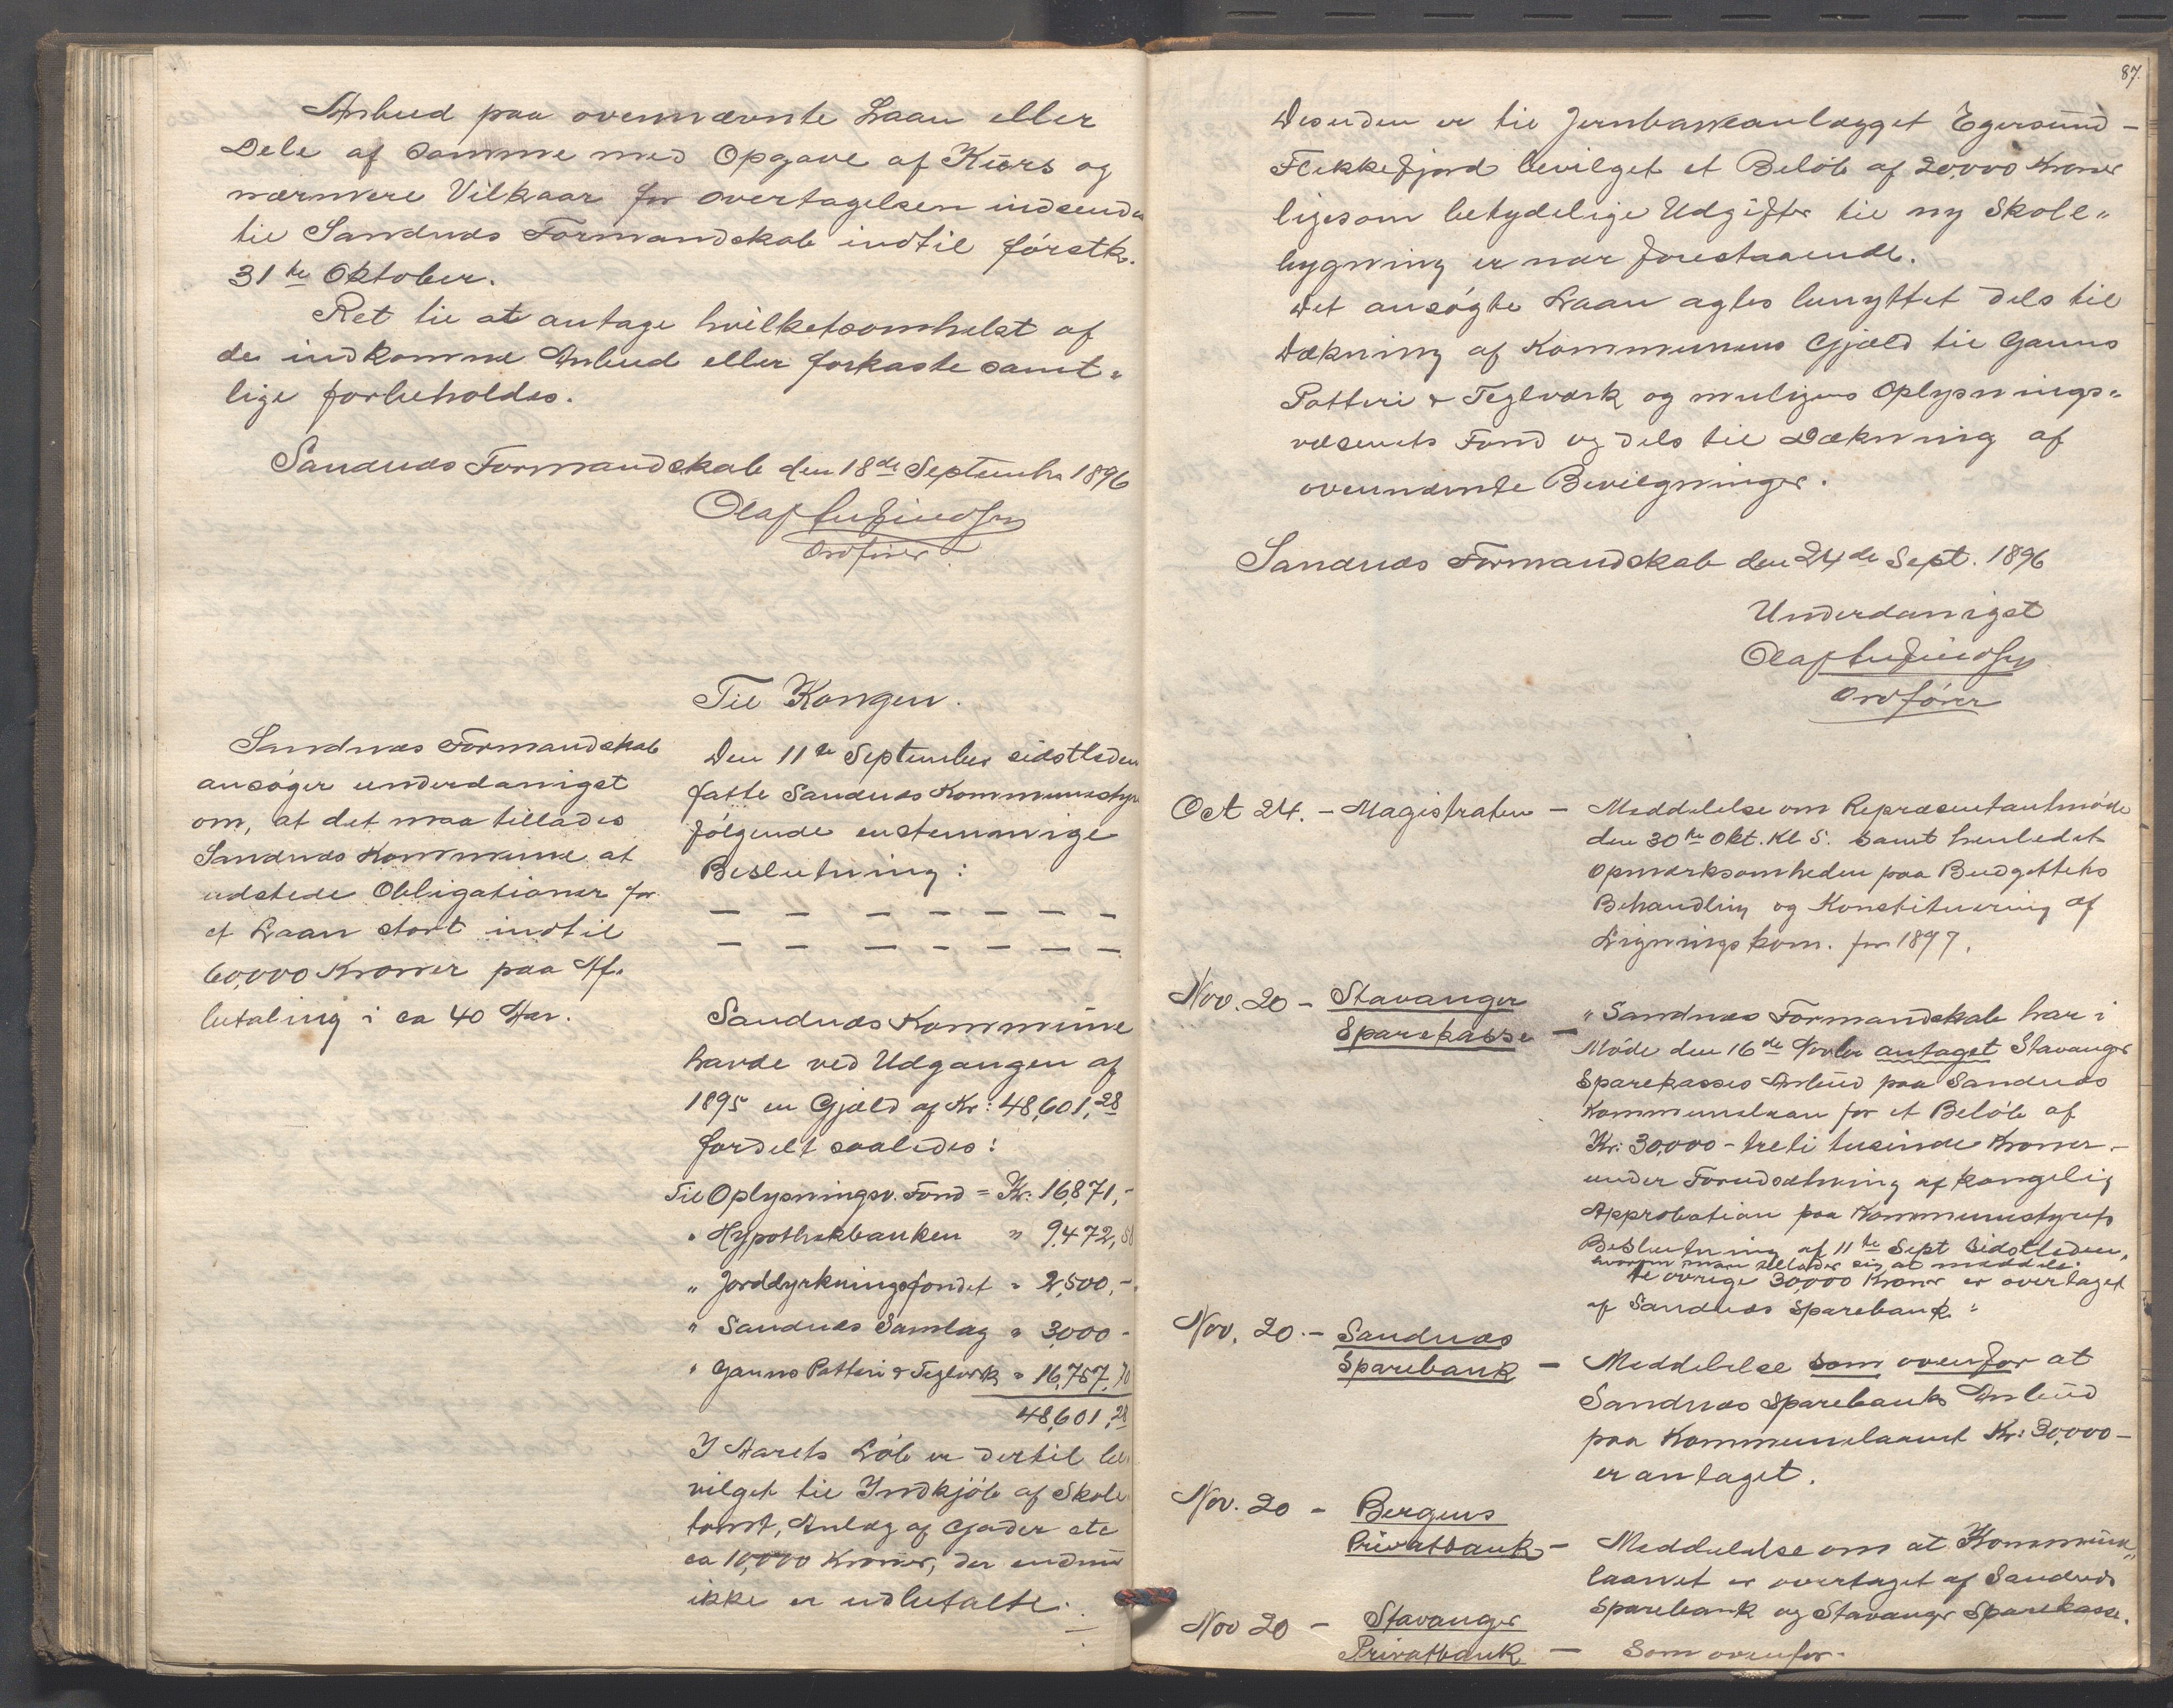 Anbud paa ovennævnte Laan eller
Dele af samme med Opgave af Kurs og
nærmere Vilkaar for overtagelsen indsendes
til Sandnæs Formandskab indtil førstk.
31te Oktober.
Ret til at antage hvilketsomhelst af
de indkomne Anbud eller forkaste samt-
lige forbeholdes.
Sandnæs Formandskab den 18de Septembr 1896
Olaf
Ordfører
Til Kongen.
Sandnæs Formandskab
ansøger underdanigst
om, at det maa tillades
Sandnæs Kommune at
udstede Obligationer for
et Laan stort indtil
60,000 Kroner paa Af-
betaling i ca 40 Aar.
Den 11te September sidstleden
fatte Sandnæs Kommunestyre
følgende enstemmige
Beslutning:
— — — — — — —
— — — — — — —
Sandnæs Kommune
havde ved Udgangen af
1895 en Gjæld af Kr: 48,601,28
fordelt saaledes:
Til Oplysningsv. Fond = Kr. 16,871,-
" Hypothekbanken " 9,472,58
" Jorddyrkningsfondet " 2,500,-
" Sandnæs Samlag " 3,000 -
" Ganns Potteri & Teglværk " 16,757,70
48,601,28
I Aarets Løb er dertil be-
vilget til Indkjøb af Skole
tomt, Anlæg af Gader etc
ca 10,000 Kroner, der endnu
ikke er udbetalte.
87.
Desuden er til Jernbaneanlægget Egersund-
Flekkefjord bevilget et Beløb af 20,000 Kroner
ligesom betydelige Udgifter til ny Skole-
bygning er nær forestaaende.
Det ansøgte Laan agtes benyttet dels til
Dækning af Kommunens Gjæld til Ganns
Potteri & Teglværk og muligens Oplysnings-
væsenets Fond og dels til Dækning af
ovennævnte Bevilgninger.
Sandnæs Formandskab den 24de Sept. 1896
Underdanigst
Olaf
Ordfører
Oct 24. - Magistraten - Meddelelse om Repræsentantmøde
den 30te Okt. Kl 5. samt henledet
Opmærksomheden paa Budgettets
Behandling og Konstituering af
Ligningskom. for 1897.
Nov. 20 - Stavanger
Sparekasse -
"Sandnæs Formandskab har i
Møde den 16de Novbr antaget Stavanger
Sparekasses Anbud paa Sandnæs
Kommunelaan for et Beløb af
Kr: 30,000 - treti tusinde Kroner -
under Forudsætning af kongelig
Approbation paa Kommunestyrets
Beslutning af 11te Sept sidstleden,
hvorom man tillader sig at meddele.
De øvrige 30,000 Kroner er overtaget
af Sandnæs Sparebank."
Nov. 20. - Sandnæs
Sparebank - Meddelelse som ovenfor at
Sandnæs Sparebanks Anbud
paa Kommunelaanet Kr: 30,000 -
er antaget.
Nov. 20 - Bergens
Privatbank - Meddelelse om at Kommune-
laanet er overtaget af Sandnæs
Sparebank og Stavanger Sparekasse.
Nov 20 - Stavanger
Privatbank - Som ovenfor.